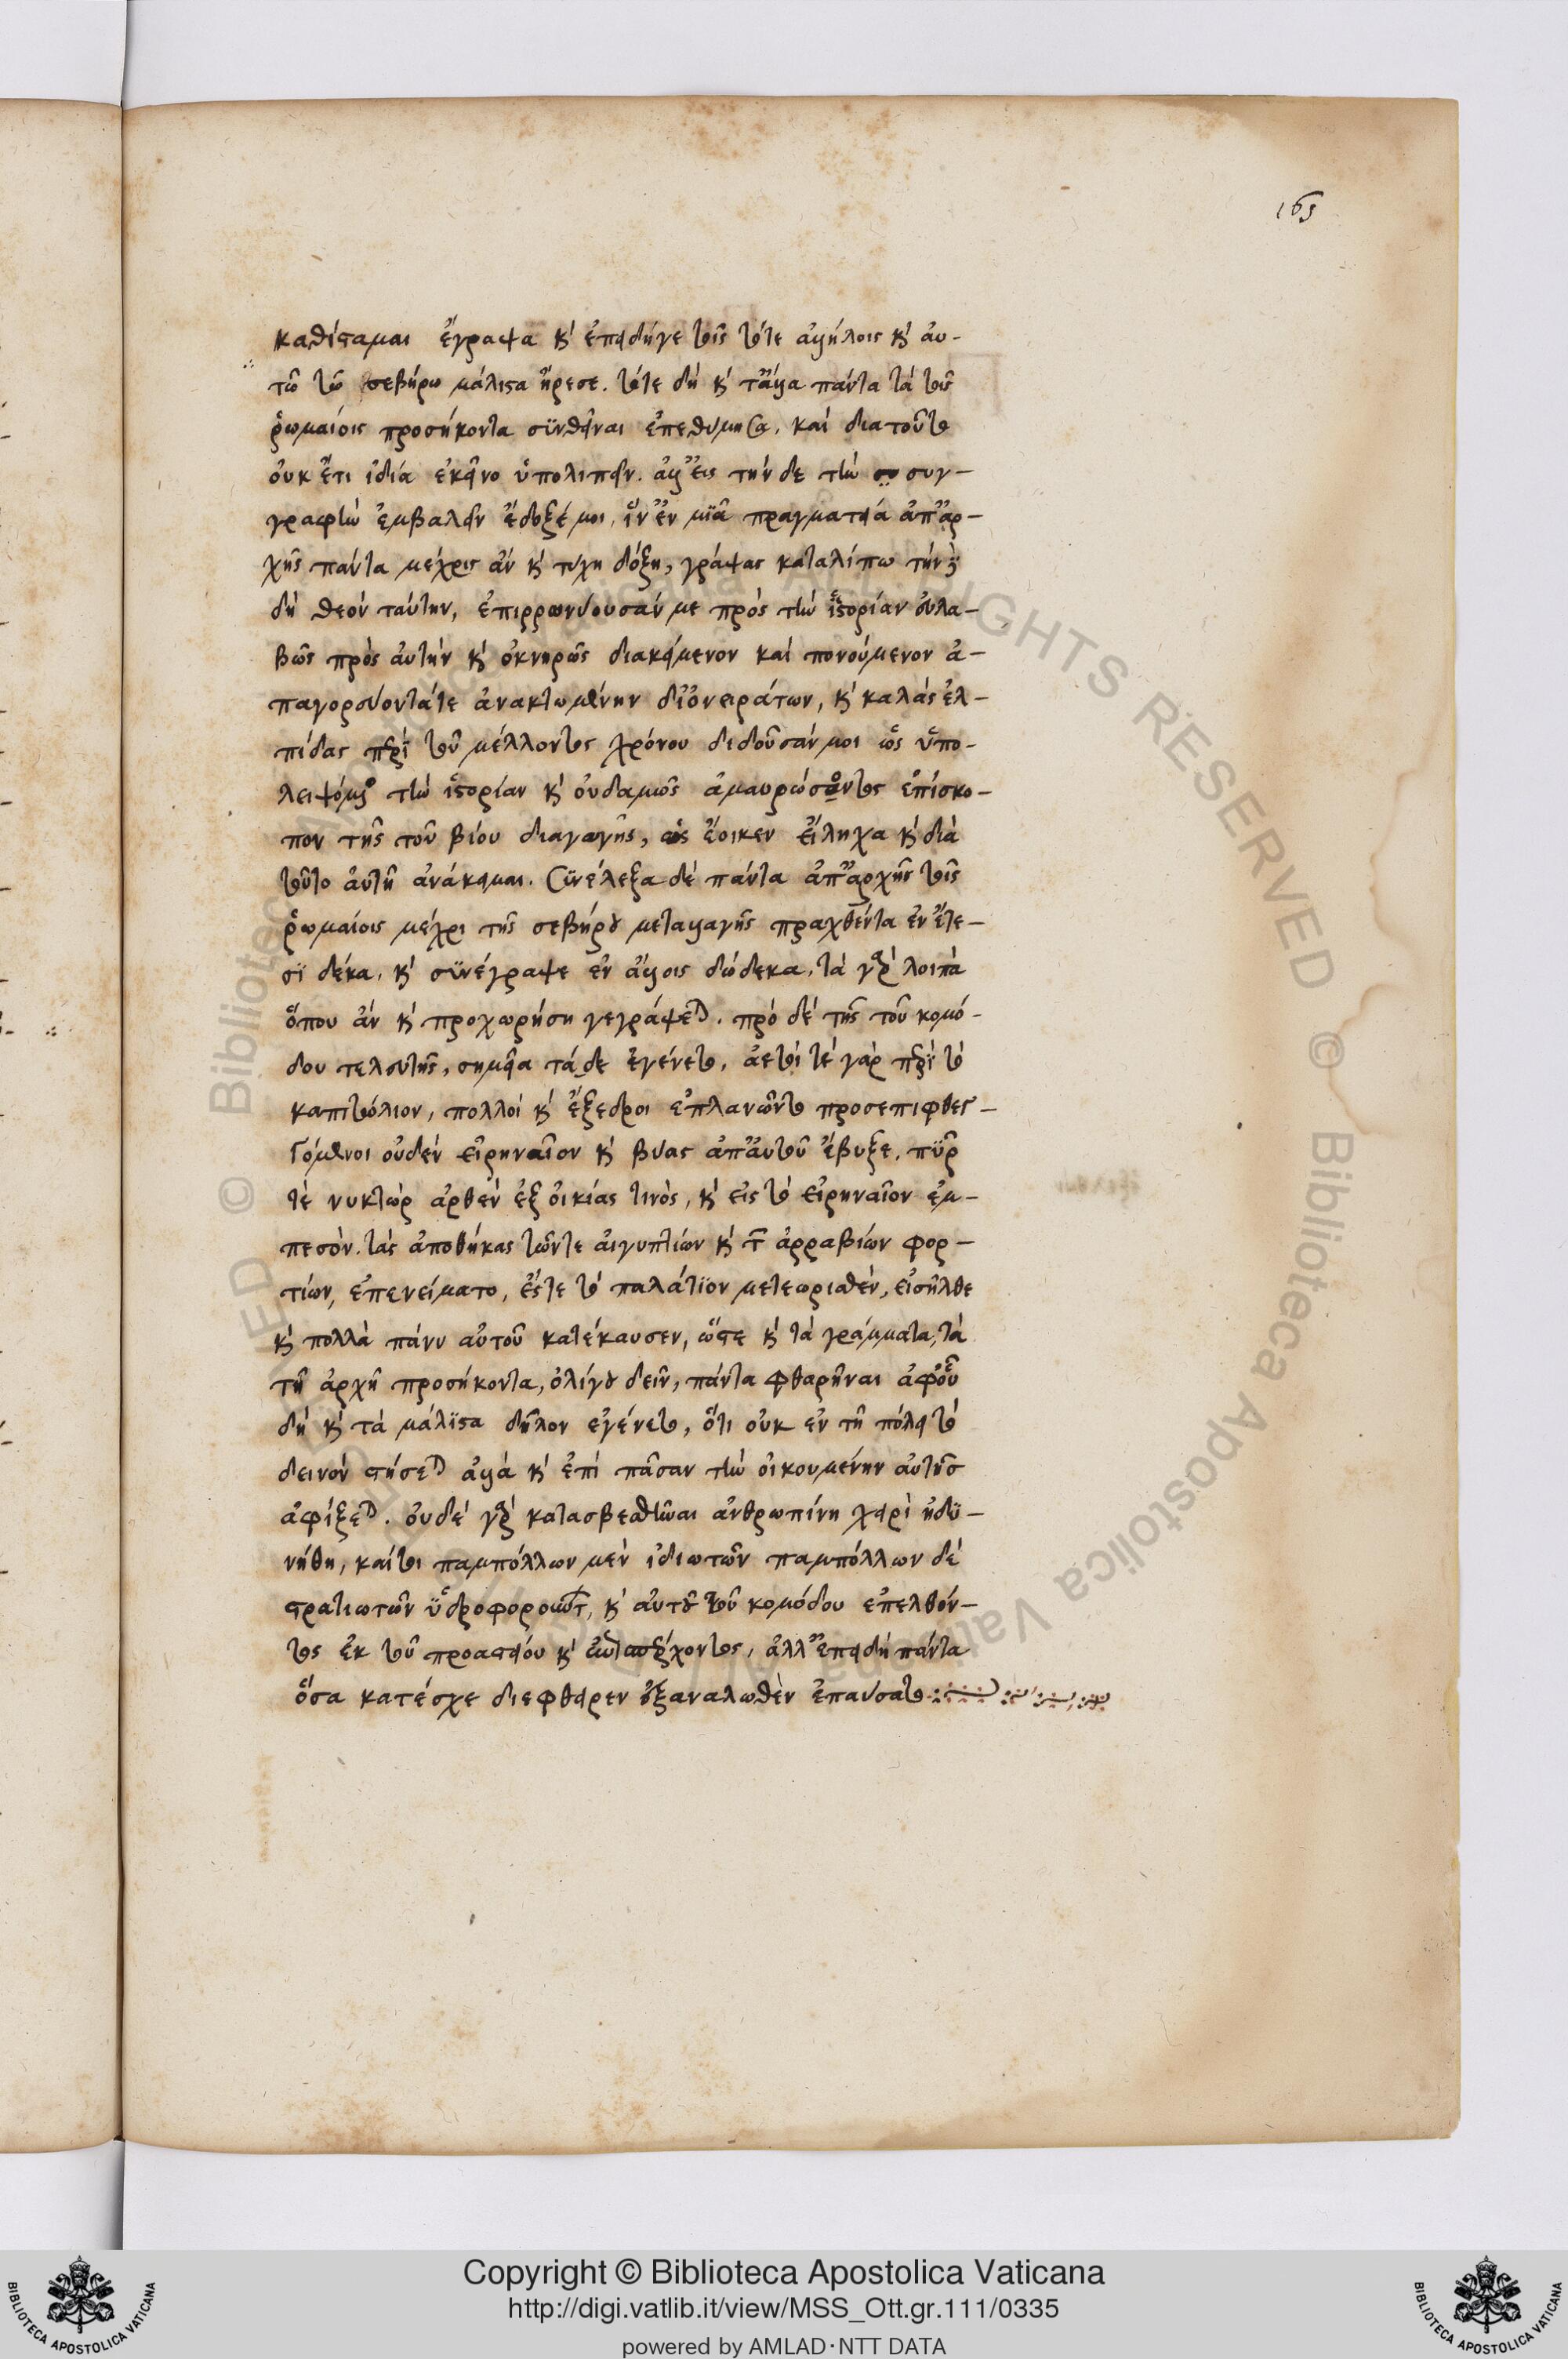 165
καθίσταμαι ἔγραψα καὶ ἐπειδήγε τοῖς τότε ἀλλήλοις καὶ αὐ-
τῶ τῶ σεβήρω μάλιστα ἤρεσε. τότε δὴ καὶ τἆλλα πάντα τὰ τοῖς
ῥωμαίοις προσήκοντα σϋνθεῖναι ἐπεθυμησα. καὶ διατοῦτο
οὐκ ἔτι ἰδία ἐκεῖνο ὑπολιπεῖν. ἀλλ' εἰς τήν δε τὴν συγ-
γραφὴν ἐμβαλεῖν ἔδοξέ μοι, ἵν' ἐν μϊᾶ πραγματεία ἀπ' ἀρ-
χῆς πάντα μέχρις ἂν καὶ τυχη δόξη, γράψας καταλίπω τήν
δὴ θεὸν ταύτην, ἐπιρρωννύουσάν με πρὸς τὴν ἱστορίαν εὐλα-
βῶς πρὸς αὐτὴν καὶ ὀκνηρῶς διακείμενον καὶ πονούμενον ἀ-
παγορεύοντάτε ἀνακτωμένην δι' ὀνειράτων, καὶ καλὰς ἐλ-
πίδας περὶ τοῦ μέλλοντος χρόνου διδοῦσάν μοι ὡς ὑπο-
λειψόμενον τὴν ἱστορίαν καὶ οὐδαμῶς ἀμαυρώσοντος ἐπίσκο-
πον τῆς τοῦ βίου διαγωγῆς, ὡς ἔοικεν εἴληχα καὶ διὰ
τοῦτο αὐτῆ ἀνάκειμαι. Σϋνέλεξα δὲ πάντα ἀπ' ἀρχῆς τοῖς
ῥωμαίοις μέχρι τῆς σεβήρου μεταλλαγῆς πραχθέντα ἐν ἔτε-
σϊ δέκα. καὶ σϋνέγραψε ἐν ἄλλοις δώδεκα. τὰ γὰρ λοιπὰ
ὅπου ἂν καὶ προχωρήση γεγράψεται. πρὸ δὲ τῆς τοῦ κομό-
δου τελευτῆς, σημεῖα τάδε ἐγένετο. ἀετοί τὲ γὰρ περὶ τὸ
καπιτόλιον, πολλοὶ καὶ ἔξεδροι ἐπλανῶντο προσεπιφθεγ-
γόμενοι οὐδὲν εἰρηναῖον καὶ βύας ἀπ' αὐτοῦ ἔβυξε. πῦρ
τὲ νυκτὼρ ἀρθὲν ἐξ οἰκίας τινὸς, καὶ εἰς τὸ εἰρηναῖον ἐμ-
πεσὸν. τὰς ἀποθήκας τῶντε αἰγυπτίων καὶ τῶν ἀρραβίων φορ-
τίων, ἐπενείματο, ἔς τε τὸ παλάτϊον μετεωρισθὲν, εἰσῆλθε
καὶ πολλὰ πάνυ αὐτοῦ κατέκαυσεν, ὥστε καὶ τὰ γράμματα, τὰ
τῆ ἀρχῆ προσήκοντα, ὀλίγου δεῖν, πάντα φθαρῆναι ἀφ' οὗ
δὴ καὶ τὰ μάλϊστα δῆλον ἐγένετο, ὅτι οὐκ ἐν τῆ πόλει τὸ
δεινὸν στήσεται ἀλλὰ καὶ ἐπὶ πᾶσαν τὴν οἰκουμένην αὐτῆσ
ἀφίξεται. οὐδὲ γὰρ κατασβεσθῆναι ἀνθρωπίνη χειρὶ ἠδϋ-
νήθη, καίτοι παμπόλλων μὲν ἰδιωτῶν παμπόλλων δὲ
στρατιωτῶν ὑδροφορούντων, καὶ αὐτοῦ τοῦ κομόδου ἐπελθόν-
τος ἐκ τοῦ προαστείου καὶ ἐπισπέρχοντος, ἀλλ' ἐπειδὴ πάντα
ὅσα κατέσχε διεφθειρεν ἐξαναλωθὲν ἐπαύσατο
© Biblioteca Apostolica Vaticana
ALL RIGHTS RESERVED
Copyright © Biblioteca Apostolica Vaticana
http://digi.vatlib.it/view/MSS_Ott.gr.111/0335
powered by AMLAD·NTT DATA
BIBLIOTECA APOSTOLICA VATICANA
BIBLIOTECA APOSTOLICA VATICANA